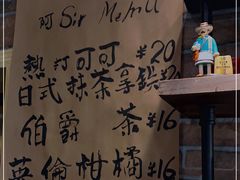 阿Sir Menu
熱打可可 ¥20
日式抹茶拿鐵
伯爵茶 ¥16
英倫柑橘 ¥16